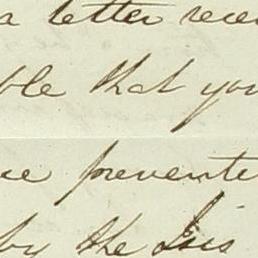 a letter rece
ble that you
ue prevente
by the Dis